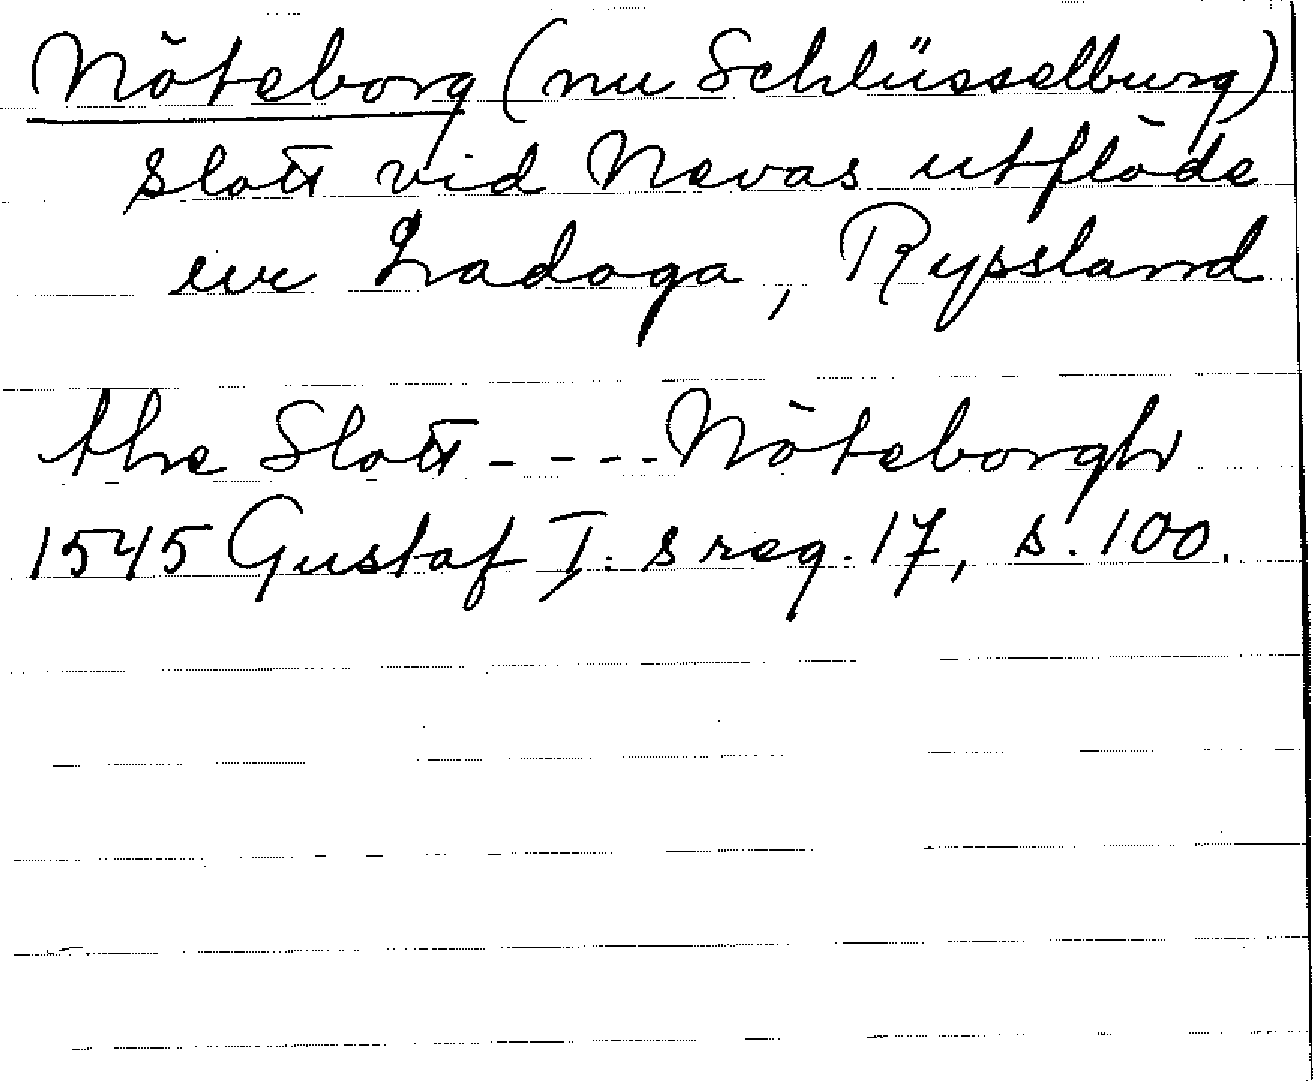 Nöteborg (nu Schlüsselburg)
slott vid Nevas utflöde
ur Ladoga, Ryssland
the Slott - - - - Nöteborgh
1545 Gustaf I:s reg. 17, s. 100.